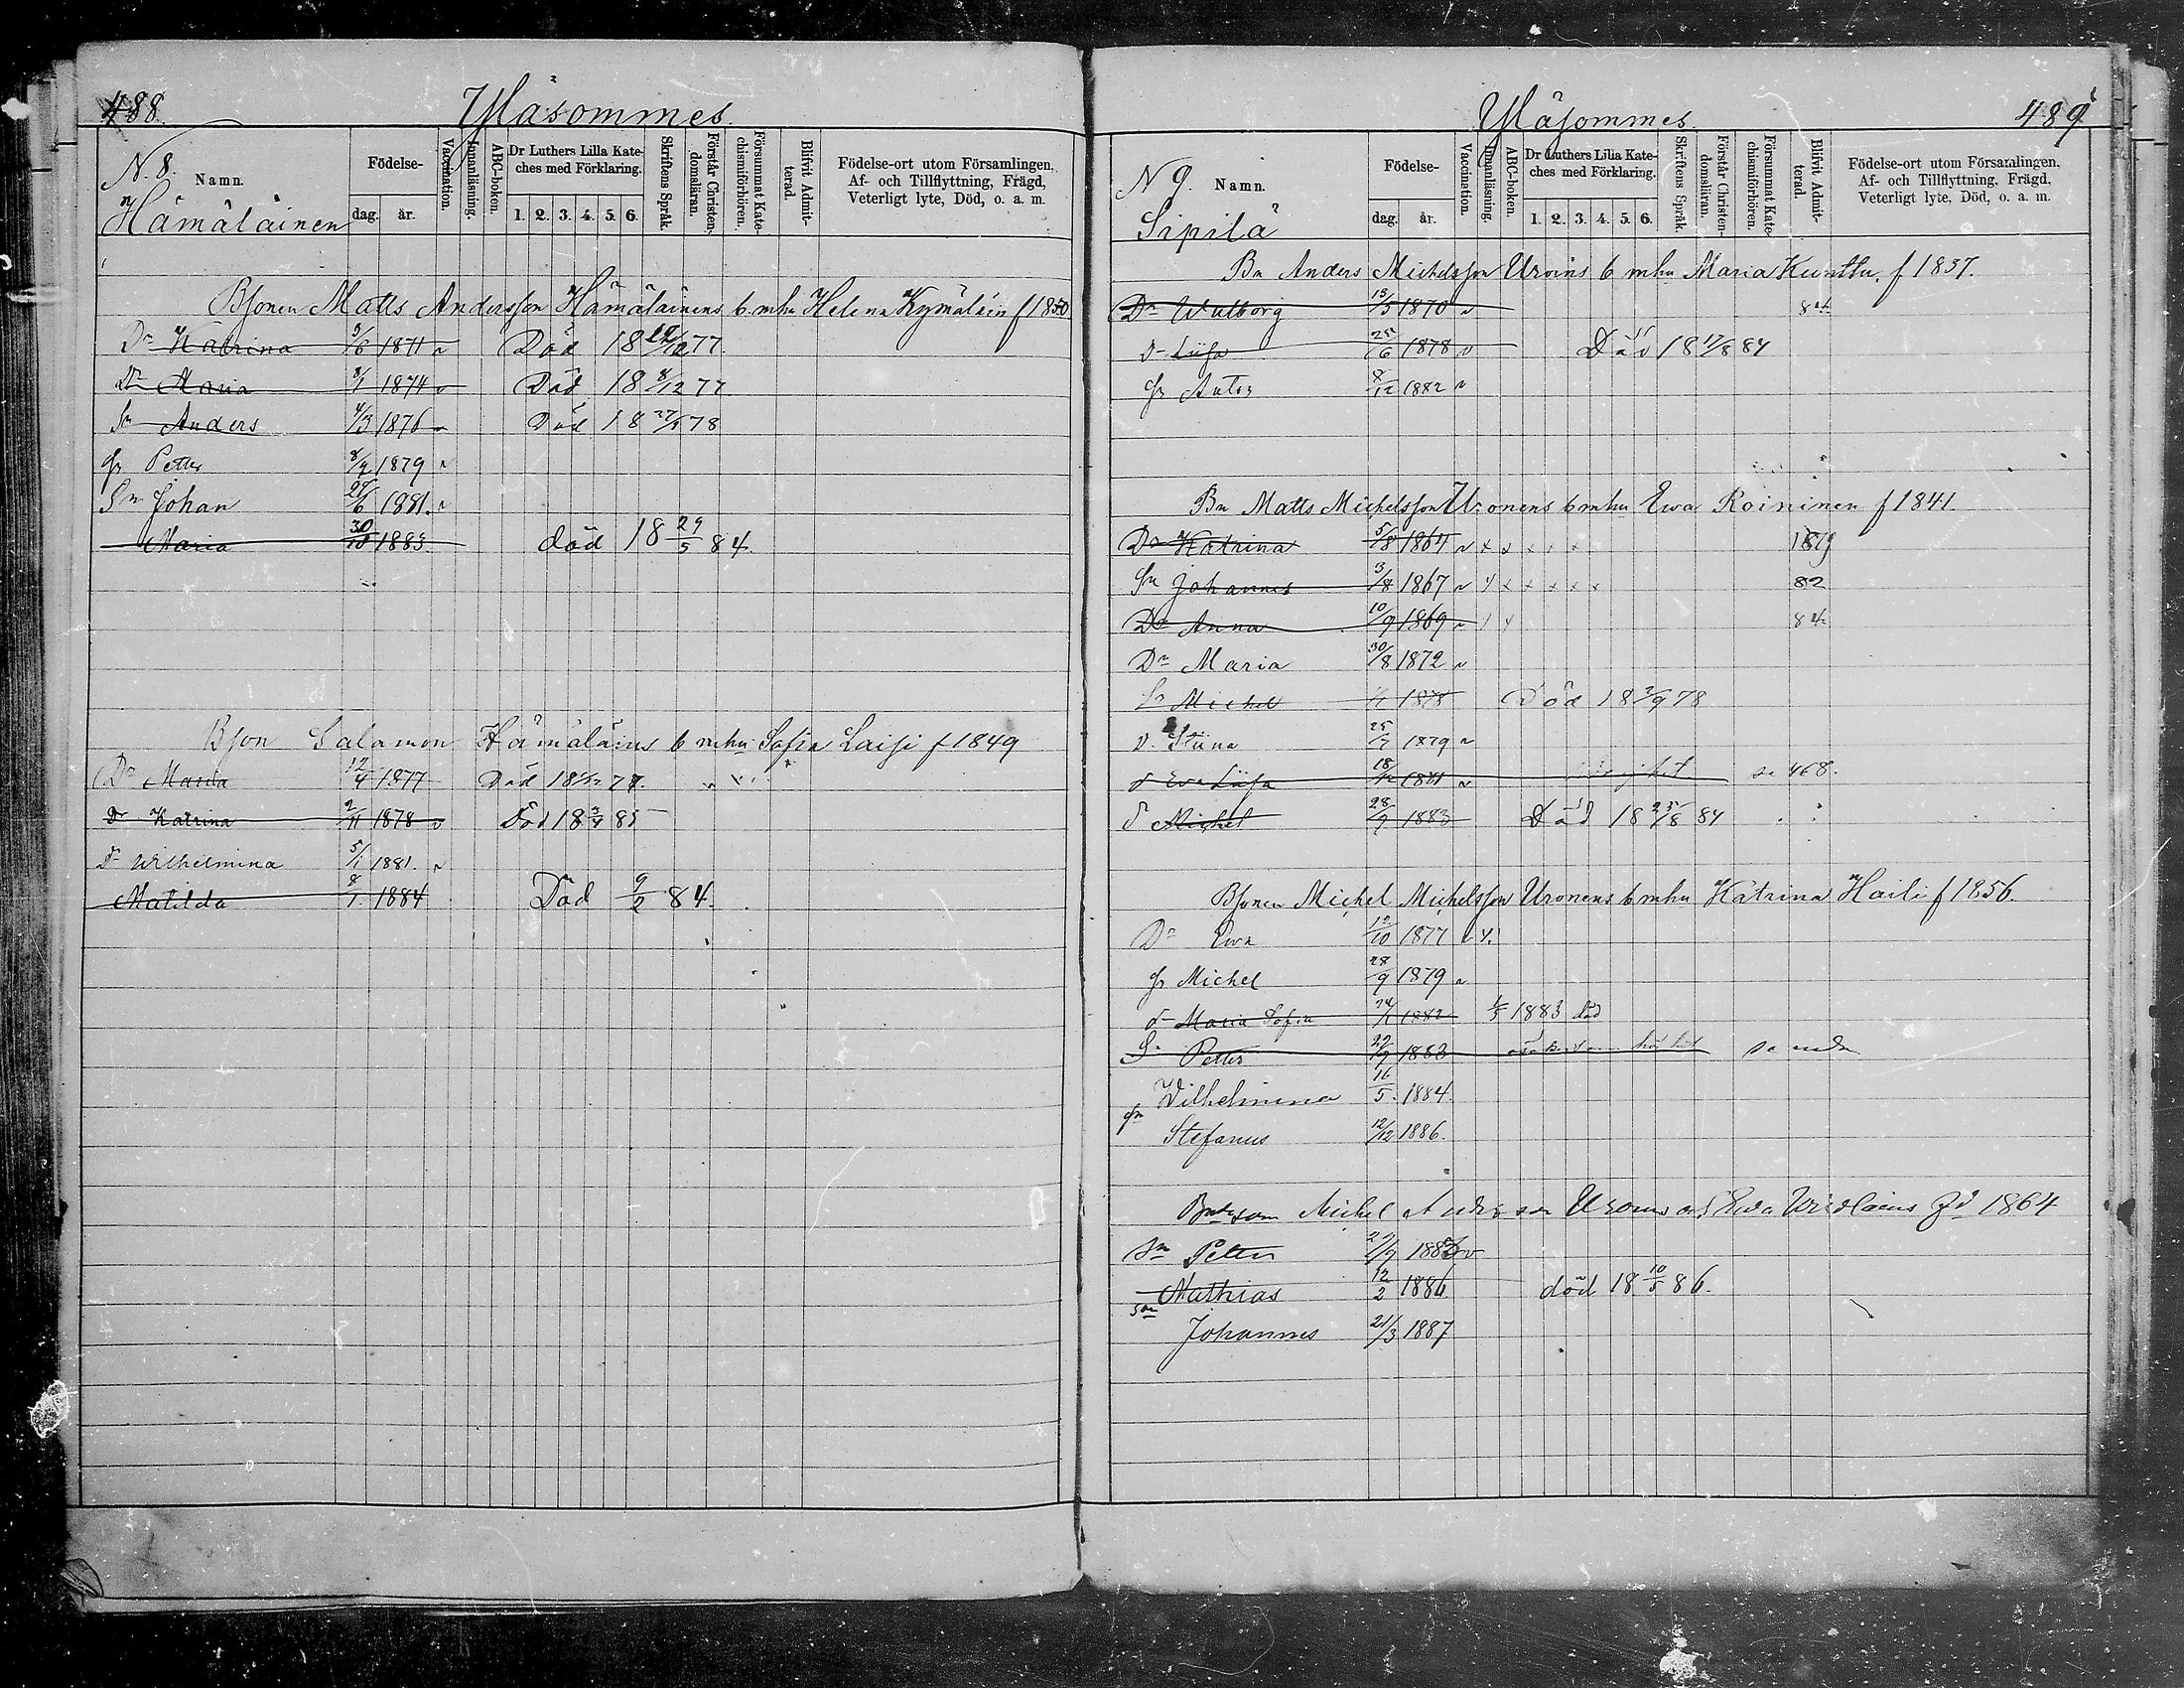 488.
Yläsommes.
N. 8.
Namn.
Hämäläinen
Födelse-
dag. år.
Vaccination.
Innanläsning.
ABC-boken.
Dr Luthers Lilla Kate-
ches med Förklaring.
1. 2. 3. 4. 5. 6.
Skriftens Språk.
Förstår Christen-
domsläran.
Försummat Kate-
chismiförhören.
Blifvit Admit-
terad.
Födelse-ort utom Församlingen,
Af- och Tillflyttning, Frägd,
Veterligt lyte, Död, o. a. m.
Bsonen Matts Andersson Hämäläinens b mhu Helena Kymäläin f 1850
Dr Katrina 5/6 1871 Död 18 /12 77.
Dr Maria 8/1 1874 Död 18 8/12 77.
Sn Anders 4/3 1876 Död 18 27/1 78
Petter 8/9 1879
Sn Johan 29/6 1881.
Maria 30/10 1883. död 18 29/5 84.
Bson Salamon Hämäläins b mhu Sofia Laisi f 1849
Dr Maria 12/4 1877 Död 18 77.
Dr Katrina 2/11 1878 Död 18 3/4 85
Dr Wilhelmina 5/1 1881.
Matilda 8/1 1884 Död 9/2 84.
Yläsommes.
489
N 9.
Namn.
Sipilä
Födelse-
dag. år.
Vaccination.
Innanläsning.
ABC-boken.
Dr Luthers Lilla Kate-
ches med Förklaring.
1. 2. 3. 4. 5. 6.
Skriftens Språk.
Förstår Christen-
domsläran.
Försummat Kate-
chismiförhören.
Blifvit Admit-
terad.
Födelse-ort utom Församlingen,
Af- och Tillflyttning, Frägd,
Veterligt lyte, Död, o. a. m.
Bn Anders Michelsson Uroins b mhu Maria Kunttu, f 1837.
Dr Walborg 13/5 1870 84
Dr Liisa 25/6 1878 Död 18 17/8 84
Anton 8/12 1882
Bn Matts Michelsson Uronens b mhu Ewa Roininen f 1841.
Dr Katrina 5/8 1864 x x x x 1879
Sn Johannes 3/8 1867 x x x x x 82
Dr Anna 10/9 1869 84
Dr Maria 30/8 1872
Sn Michel 1878 Död 18 2/9 78
D. Stina 25/7 1879
d Eva Liisa 18/12 1881 se 468.
Michel 28/9 1883 Död 18 25/8 84
Bsonen Michel Michelsson Uronens b mhu Katrina Haili f 1856.
Dr Ewa 12/10 1877
Michel 28/9 1879
d Maria Sofia 24/1 1882 1883 död
S. Petter 29/9 1883 se
Wilhelmina 16/5. 1884.
Stefanus 12/12 1886.
Michel Andersson Uronens Ewa f 1864
Sn Petter 29/9 1883
Mathias 12/2 1886 död 18 10/5 86.
Sn
Johannes 21/3 1887